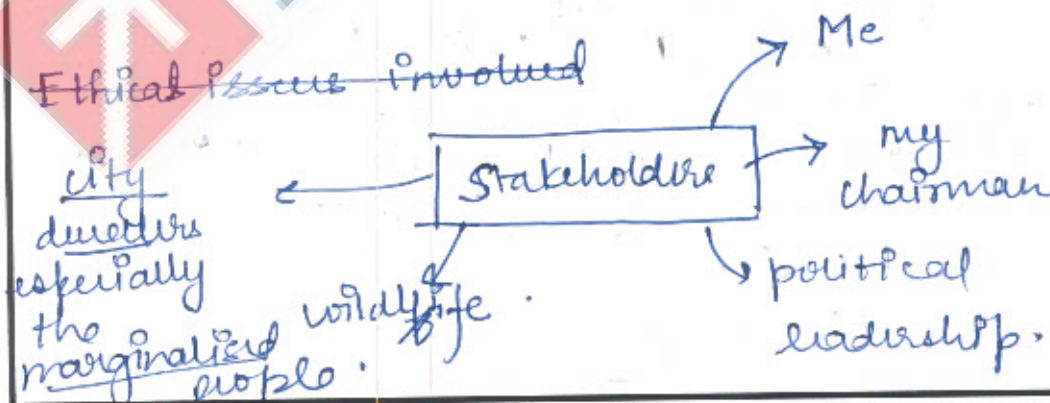 Ethical issues involved
Stakeholders
Me
my
chairman
political
leadership.
wildlife.
city
dwellers
especially
the
marginalised
people.